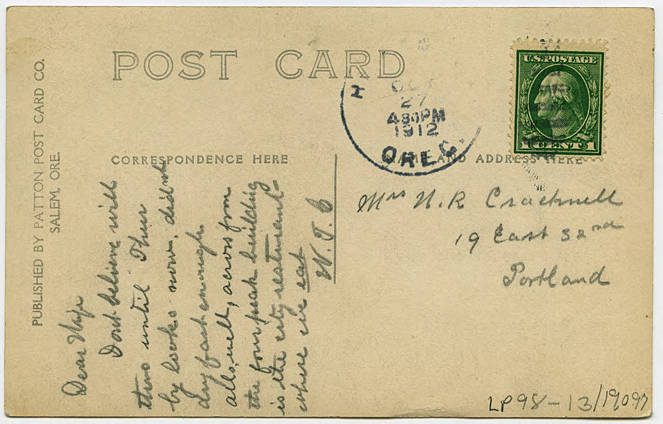 POST CARD
PUBLISHED BY PATTON POST CARD CO.
SALEM, ORE.
CORRESPONDENCE HERE
NAME AND ADDRESS HERE
U.S. POSTAGE
1 CENT 1
OCT
27
4 30 PM
1912
OREG.
Dear Wife
Dont believe will
thru until Thur
by looks now. didnt
dry fast enough
alls well, across from
the four peak building
is the city restaurant-
where we eat
W. J. C
Mrs W. R Cracknell
19 East 32nd
Portland
LP98-13/19097